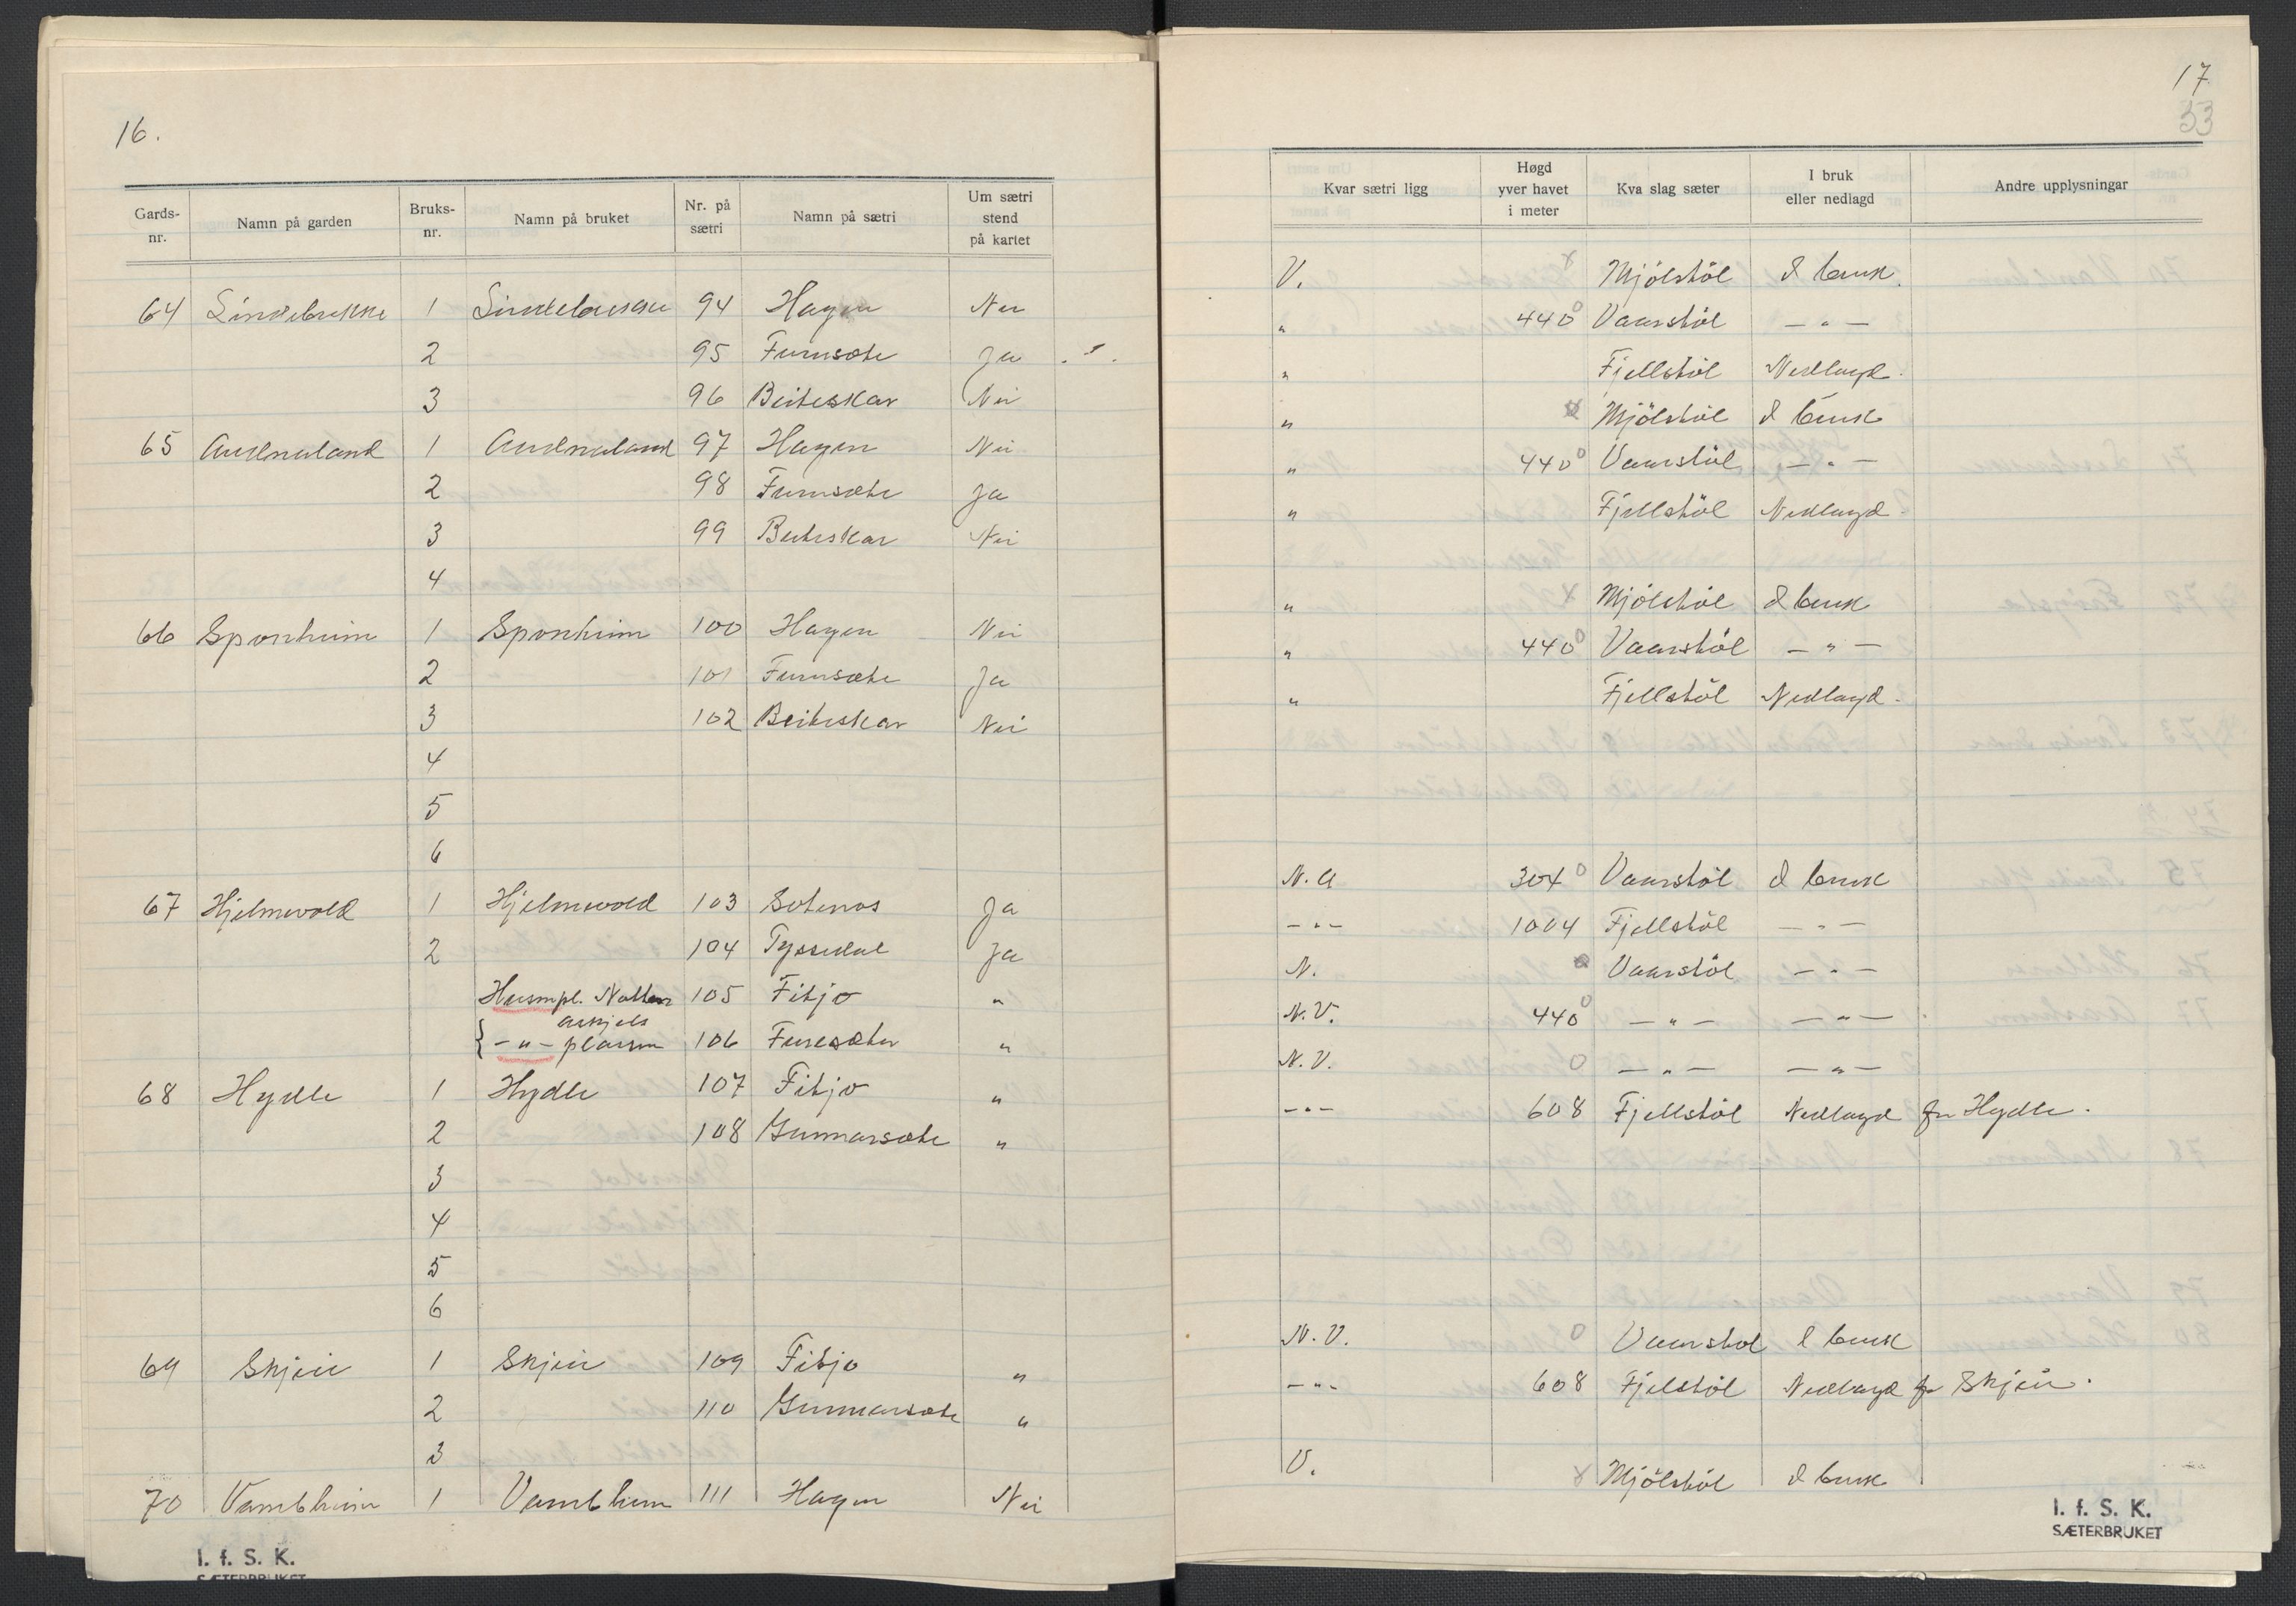 16.
Gards-nr. Namn på garden Bruks-nr. Namn på bruket Nr. på sætri Namn på sætri Um sætri stend på kartet
64 Lindebrekke 1 Lindebrekke 94 Hagen Nei
2 " 95 Furusæte Ja
3 " 96 Beiteskar Nei
65 Audnaland 1 Audnaland 97 Hagen Nei
2 98 Furusæte Ja
3 99 Beiteskar Nei
4
66 Sponheim 1 Sponheim 100 Hagen Nei
2 " 101 Furusæte Ja
3 102 Beiteskar Nei
4
5
6
67 Hjelmevold 1 Hjelmevold 103 Sotenos Ja
2 104 Tyssedal Ja
Husmpl. 105 Fitjo "
{ - " - plassen 106 Furesæter "
68 Hydle 1 Hydle 107 Fitjo "
2 108 Gunnarsæte "
3
4
5
6
69 Skjeie 1 Skjeie 109 Fitjo "
2 110 Gunnarsæte "
3
70 Vambheim 1 Vambheim 111 Hagen Nei
I. f. S. K.
SÆTERBRUKET
17
33
Kvar sætri ligg Høgd yver havet i meter Kva slag sæter I bruk eller nedlagd Andre upplysningar
V. x Mjölstöl I bruk.
" 440 0 Vaarstöl - " -
" Fjellstöl Nedlagd.
" x Mjölstöl I bruk
" 440 0 Vaarstöl - " -
" Fjellstöl Nedlagd.
" x Mjölstöl I bruk
" 440 0 Vaarstöl - " -
" Fjellstöl Nedlagd.
N. A 304 0 Vaarstöl I bruk
- " - 1004 Fjellstöl - " -
N. 0 Vaarstöl - " -
N. V. 440 0 - " - - " -
N. V. 0 - " - - " -
- " - 608 Fjellstöl Nedlagd fr Hydle.
N. V. 0 Vaarstol I bruk
- " - 608 Fjelstöl Nedlagd fr Skjeie.
V. x Mjölstöl I bruk
I. f. S. K.
SÆTERBRUKET